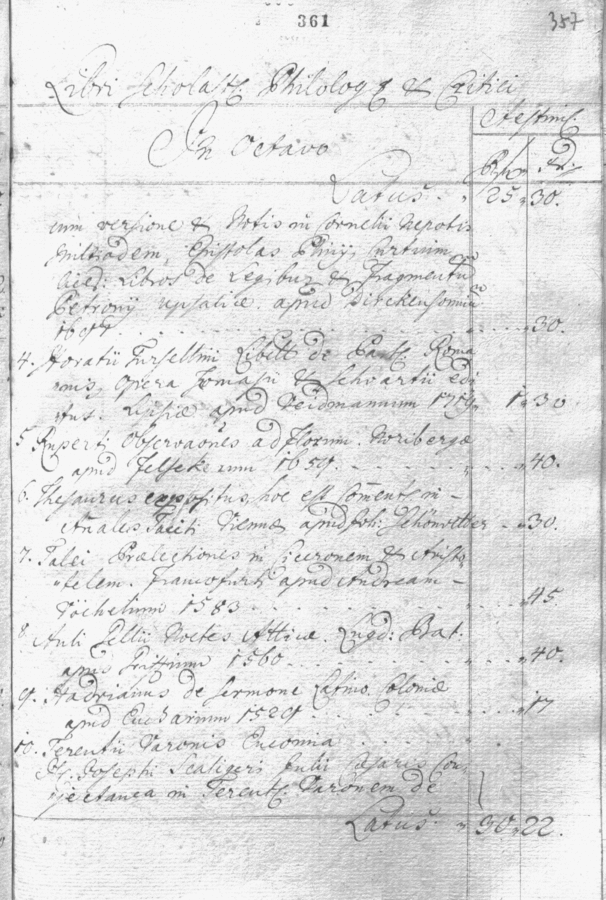 361 357
Libri Scholast: Philolog & Critici
In Octavo
Æstim:
Rfl xr
Latus. 25 30.
cum versione & Notis in Cornelii Nepotis
Miltiadem, Epistolas Plinij, Curtium
Cice: Libros de Legibus & Fragmentum
Petronij Upsaliæ. apud
30.
4. Horatii Tursellini Libell de Part: Roma
nis, opera Tomasii & Schvartii edi
tus. Lipsiæ apud Veidmannum 1719. 1 30
5 Ruperti Observaones ad Florum. Noribergæ
apud Felsekerum 1659. 40.
6. Thesaurus expositus, hoc est Coment: in
Añales Taciti Viennæ apud Joh: 30.
7. Talei Prælectiones in Ciceronem & Aristo
telem. Francofurti apud Andream
1583 45
8 Auli Gellii Noctes Atticæ. Lugd: Bat.
apud 1560. 40.
9. Hadrianus de Sermone Latino. Coloniæ
apud Eucharium 1529 17
10. Terentii Varonis
Josephi Scaligeri Julii Cæsaris Con
jectanea in Terent: Varonem de
Latus. 30 22.